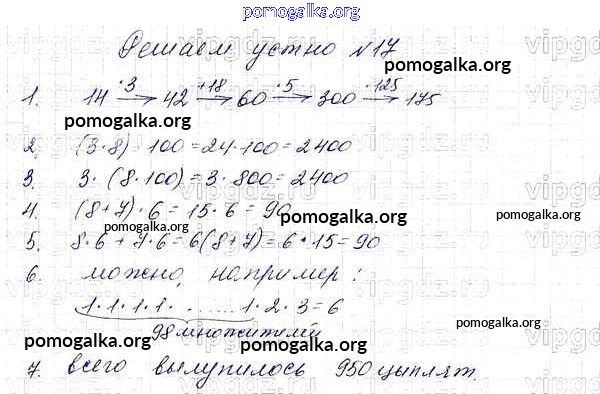 pomogalka.org
Решаем устно №17
pomogalka.org
1. 14 ·3→ 42 +18→ 60 ·5→ 300 -125→ 175
pomogalka.org
2. (3·8)·100=24·100=2400
3. 3·(8·100)=3·800=2400
4. (8+7)·6=15·6=90
pomogalka.org
pomogalka.org
5. 8·6+7·6=6(8+7)=6·15=90
6. можно, например:
1·1·1·1· ........ 1·2·3=6
pomogalka.org
98 множителей
pomogalka.org
7. всего вылупилось 950 цыплят.